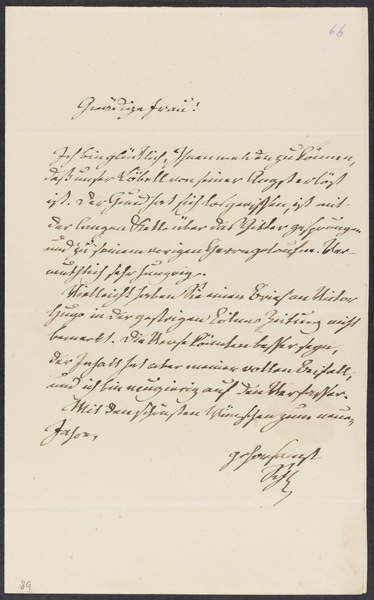 66
Gnädige Frau!
Ich bin glücklich, Ihnen melden zu können,
daß unser von seiner Angst erlöst
ist. Der Hund hat sich losgerissen, ist mit
der langen Kette über das Gitter gesprungen
und zu seinem vorigen Herrn gelaufen. Ver-
muthlich sehr hungrig.
Vielleicht haben Sie einen Brief an Victor
Hugo in der gestrigen Zeitung nicht
bemerkt. Die Verse könnten besser seyn,
der Inhalt hat aber meinen vollen Beifall,
und ich bin neugierig auf den Verfasser.
Mit den schönsten Wünschen zum neuen
Jahre,
gehorsamst
89